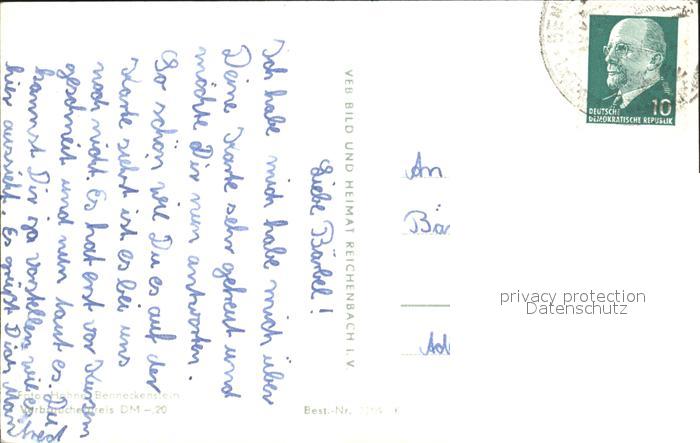 Liebe Bärbel!
Ich habe mich habe mich über
Deine Karte sehr gefreut und
möchte Dir nun antworten.
So schön wie Du es auf der
Karte siehst ist es bei uns
noch nicht. Es hat erst vor Kurzem
geschneit und nun taut es. Du
kannst Dir ja vorstellen wie es
hier aussieht. Es grüßt Dich
VEB BILD UND HEIMAT REICHENBACH I. V.
An
Bär
Ad
DEUTSCHE
DEMOKRATISCHE REPUBLIK
10
privacy protection
Datenschutz
Foto: Hahne, Benneckenstein
Verbraucherpreis DM -,20
Best.-Nr.